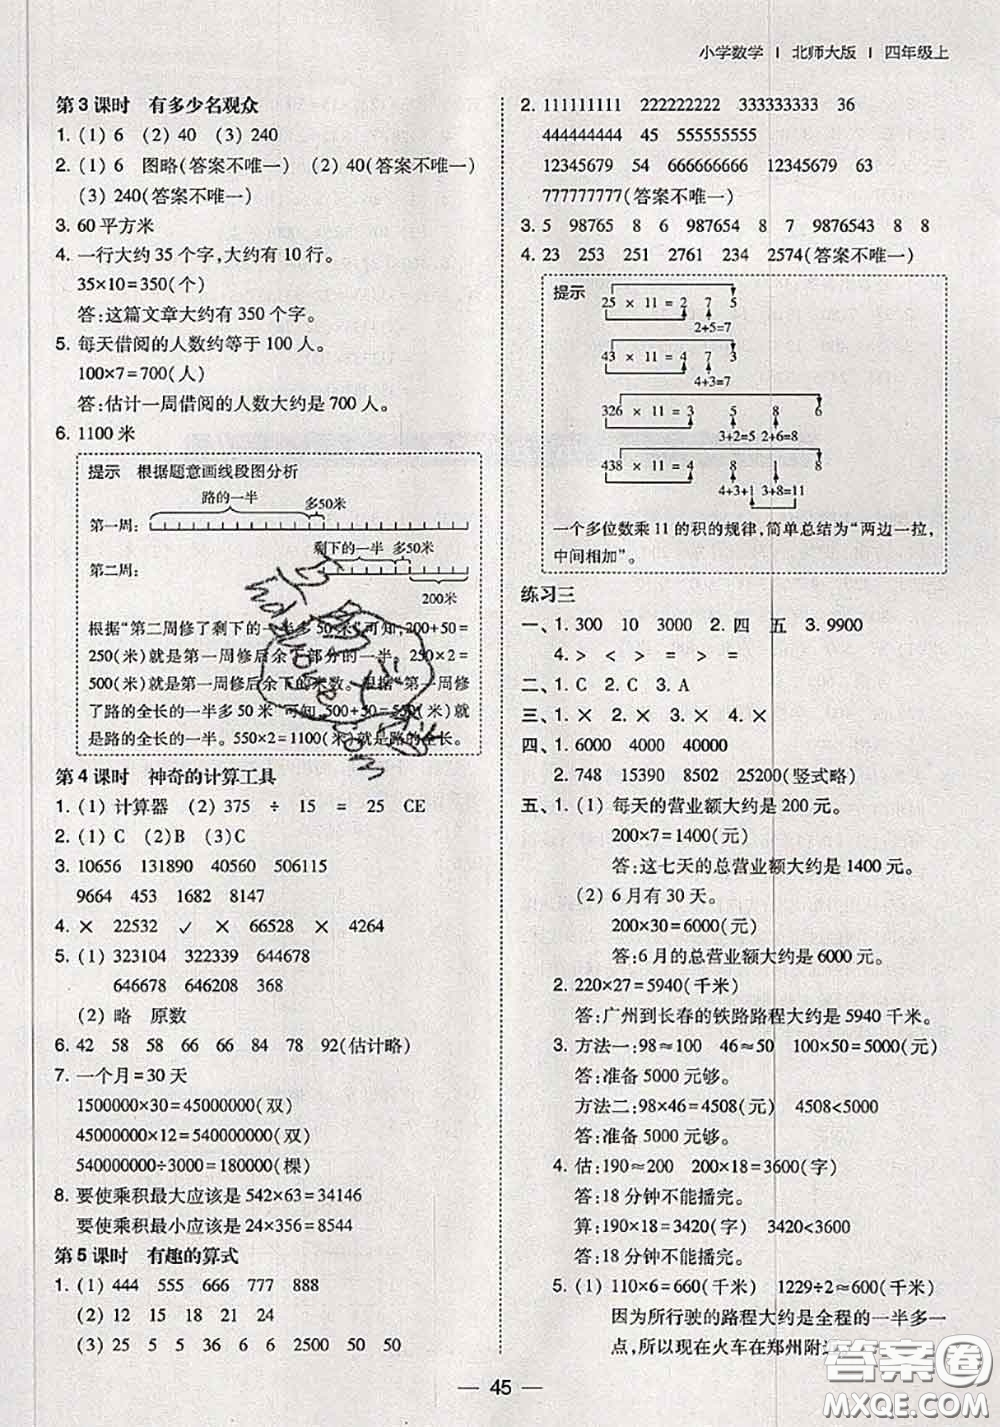 小学数学 | 北师大版 | 四年级上
第 3 课时 有多少名观众
1. (1) 6 (2) 40 (3) 240
2. (1) 6 图略(答案不唯一) (2) 40(答案不唯一)
(3) 240(答案不唯一)
3. 60 平方米
4. 一行大约 35 个字,大约有 10 行。
35×10=350(个)
答:这篇文章大约有 350 个字。
5. 每天借阅的人数约等于 100 人。
100×7=700(人)
答:估计一周借阅的人数大约是 700 人。
6. 1100 米
提示 根据题意画线段图分析
路的一半 多50米
第一周:
剩下的一半 多50米
第二周:
200米
根据“第二周修了剩下的一半多 50 米”可知,200+50=
250(米)就是第一周修后余下部分的一半。250×2=
500(米)就是第一周修后余下的米数。根据“第一周修
了路的全长的一半多 50 米”可知,500+50=550(米)
就是路的全长的一半。550×2=1100(米)就是路的全长。
第 4 课时 神奇的计算工具
1. (1) 计算器 (2) 375 ÷ 15 = 25 CE
2. (1) C (2) B (3) C
3. 10656 131890 40560 506115
9664 453 1682 8147
4. × 22532 ✓ × 66528 × 4264
5. (1) 323104 322339 644678
646678 646208 368
(2) 略 原数
6. 42 58 58 66 66 84 78 92(估计略)
7. 一个月=30 天
1500000×30=45000000(双)
45000000×12=540000000(双)
540000000÷3000=180000(棵)
8. 要使乘积最大应该是 542×63=34146
要使乘积最小应该是 24×356=8544
第 5 课时 有趣的算式
1. (1) 444 555 666 777 888
(2) 12 15 18 21 24
(3) 25 5 5 6 6 2500 50 50
2. 111111111 222222222 333333333 36
444444444 45 555555555
12345679 54 666666666 12345679 63
777777777(答案不唯一)
3. 5 98765 8 6 987654 8 7 9876543 8 8
4. 23 253 251 2761 234 2574(答案不唯一)
提示
25 × 11 = 2 7 5
2+5=7
43 × 11 = 4 7 3
4+3=7
326 × 11 = 3 5 8 6
3+2=5 2+6=8
438 × 11 = 4 8 1 8
4+3+1 3+8=11
一个多位数乘 11 的积的规律,简单总结为“两边一拉,
中间相加”。
练习三
一、1. 300 10 3000 2. 四 五 3. 9900
4. > < > = > =
二、1. C 2. C 3. A
三、1. × 2. × 3. × 4. ×
四、1. 6000 4000 40000
2. 748 15390 8502 25200(竖式略)
五、1. (1) 每天的营业额大约是 200 元。
200×7=1400(元)
答:这七天的总营业额大约是 1400 元。
(2) 6 月有 30 天。
200×30=6000(元)
答:6 月的总营业额大约是 6000 元。
2. 220×27=5940(千米)
答:广州到长春的铁路路程大约是 5940 千米。
3. 方法一:98≈100 46≈50 100×50=5000(元)
答:准备 5000 元够。
方法二:98×46=4508(元) 4508<5000
答:准备 5000 元够。
4. 估:190≈200 200×18=3600(字)
答:18 分钟不能播完。
算:190×18=3420(字) 3420<3600
答:18 分钟不能播完。
5. (1) 110×6=660(千米) 1229÷2≈600(千米)
因为所行驶的路程大约是全程的一半多一
点,所以现在火车在郑州附近
45
答案圈
MXQE.COM